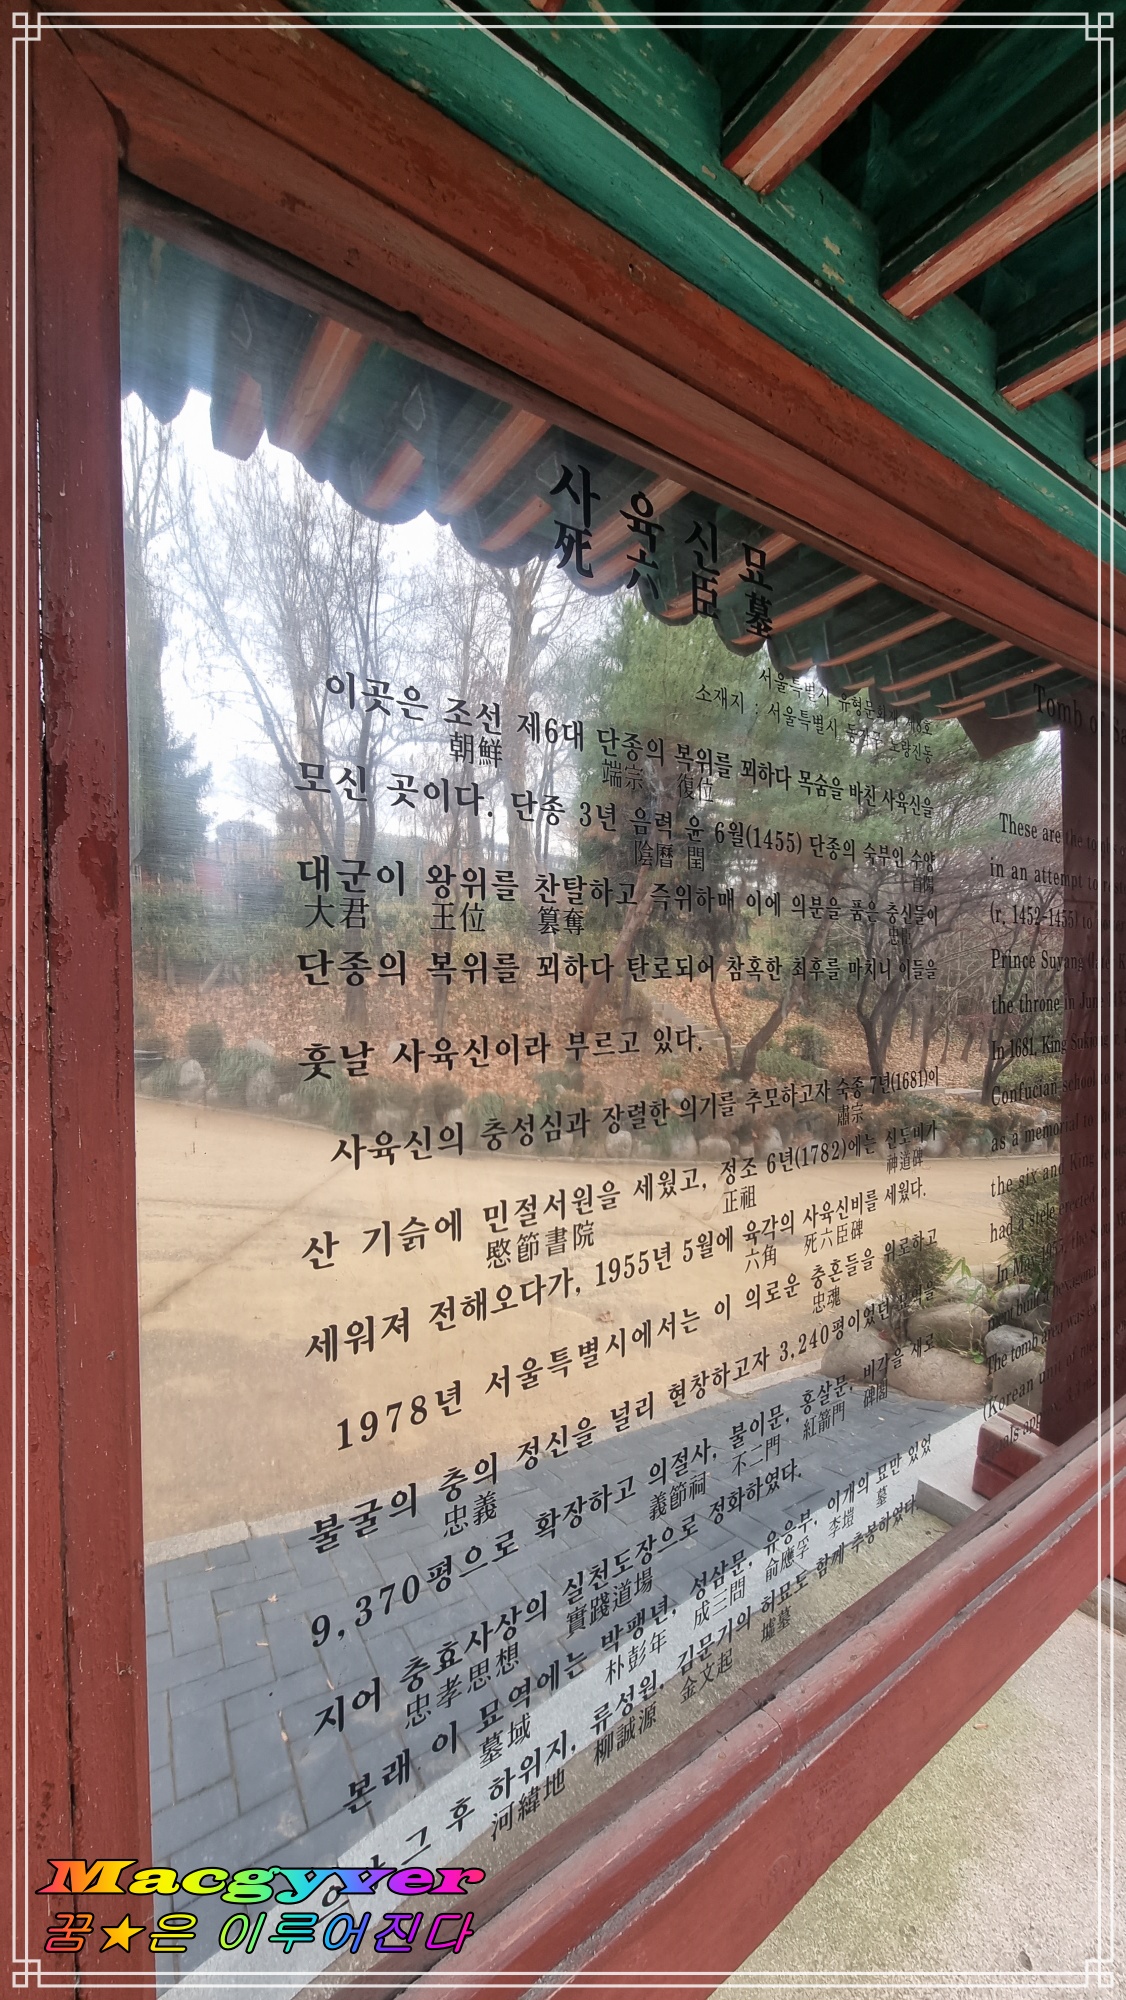 사육신묘
死六臣墓
서울특별시 유형문화재 제8호
소재지 : 서울특별시 동작구 노량진동
이곳은 조선 제6대 단종의 복위를 꾀하다 목숨을 바친 사육신을
朝鮮 端宗 復位
모신 곳이다. 단종 3년 음력 윤 6월(1455) 단종의 숙부인 수양
陰曆 閏 首陽
대군이 왕위를 찬탈하고 즉위하매 이에 의분을 품은 충신들이
大君 王位 篡奪 忠臣
단종의 복위를 꾀하다 탄로되어 참혹한 최후를 마치니 이들을
훗날 사육신이라 부르고 있다.
사육신의 충성심과 장렬한 의기를 추모하고자 숙종 7년(1681)이
肅宗
산 기슭에 민절서원을 세웠고, 정조 6년(1782)에는 신도비가
愍節書院 正祖 神道碑
세워져 전해오다가, 1955년 5월에 육각의 사육신비를 세웠다.
六角 死六臣碑
1978년 서울특별시에서는 이 의로운 충혼들을 위로하고
忠魂
불굴의 충의 정신을 널리 현창하고자 3,240평이었던 묘역을
忠義
9,370평으로 확장하고 의절사, 불이문, 홍살문, 비각을 새로
義節祠 不二門 紅箭門 碑閣
지어 충효사상의 실천도장으로 정화하였다.
忠孝思想 實踐道場
본래 이 묘역에는 박팽년, 성삼문, 유응부, 이개의 묘만 있었
墓域 朴彭年 成三問 俞應孚 李塏 墓
그 후 하위지, 류성원, 김문기의 허묘도 함께 추봉하였다.
河緯地 柳誠源 金文起 墟墓
Tomb
These are the
in an attempt to
(r. 1452-1455) to
Prince Suyang
the throne in June
In 1681, King Sukjong
Confucian school
as a memorial to
the six and King
had a stele erected
In May 1955, the
ment built a hexagonal
The tomb area was
(Korean unit of
Macgyver
꿈★은 이루어진다